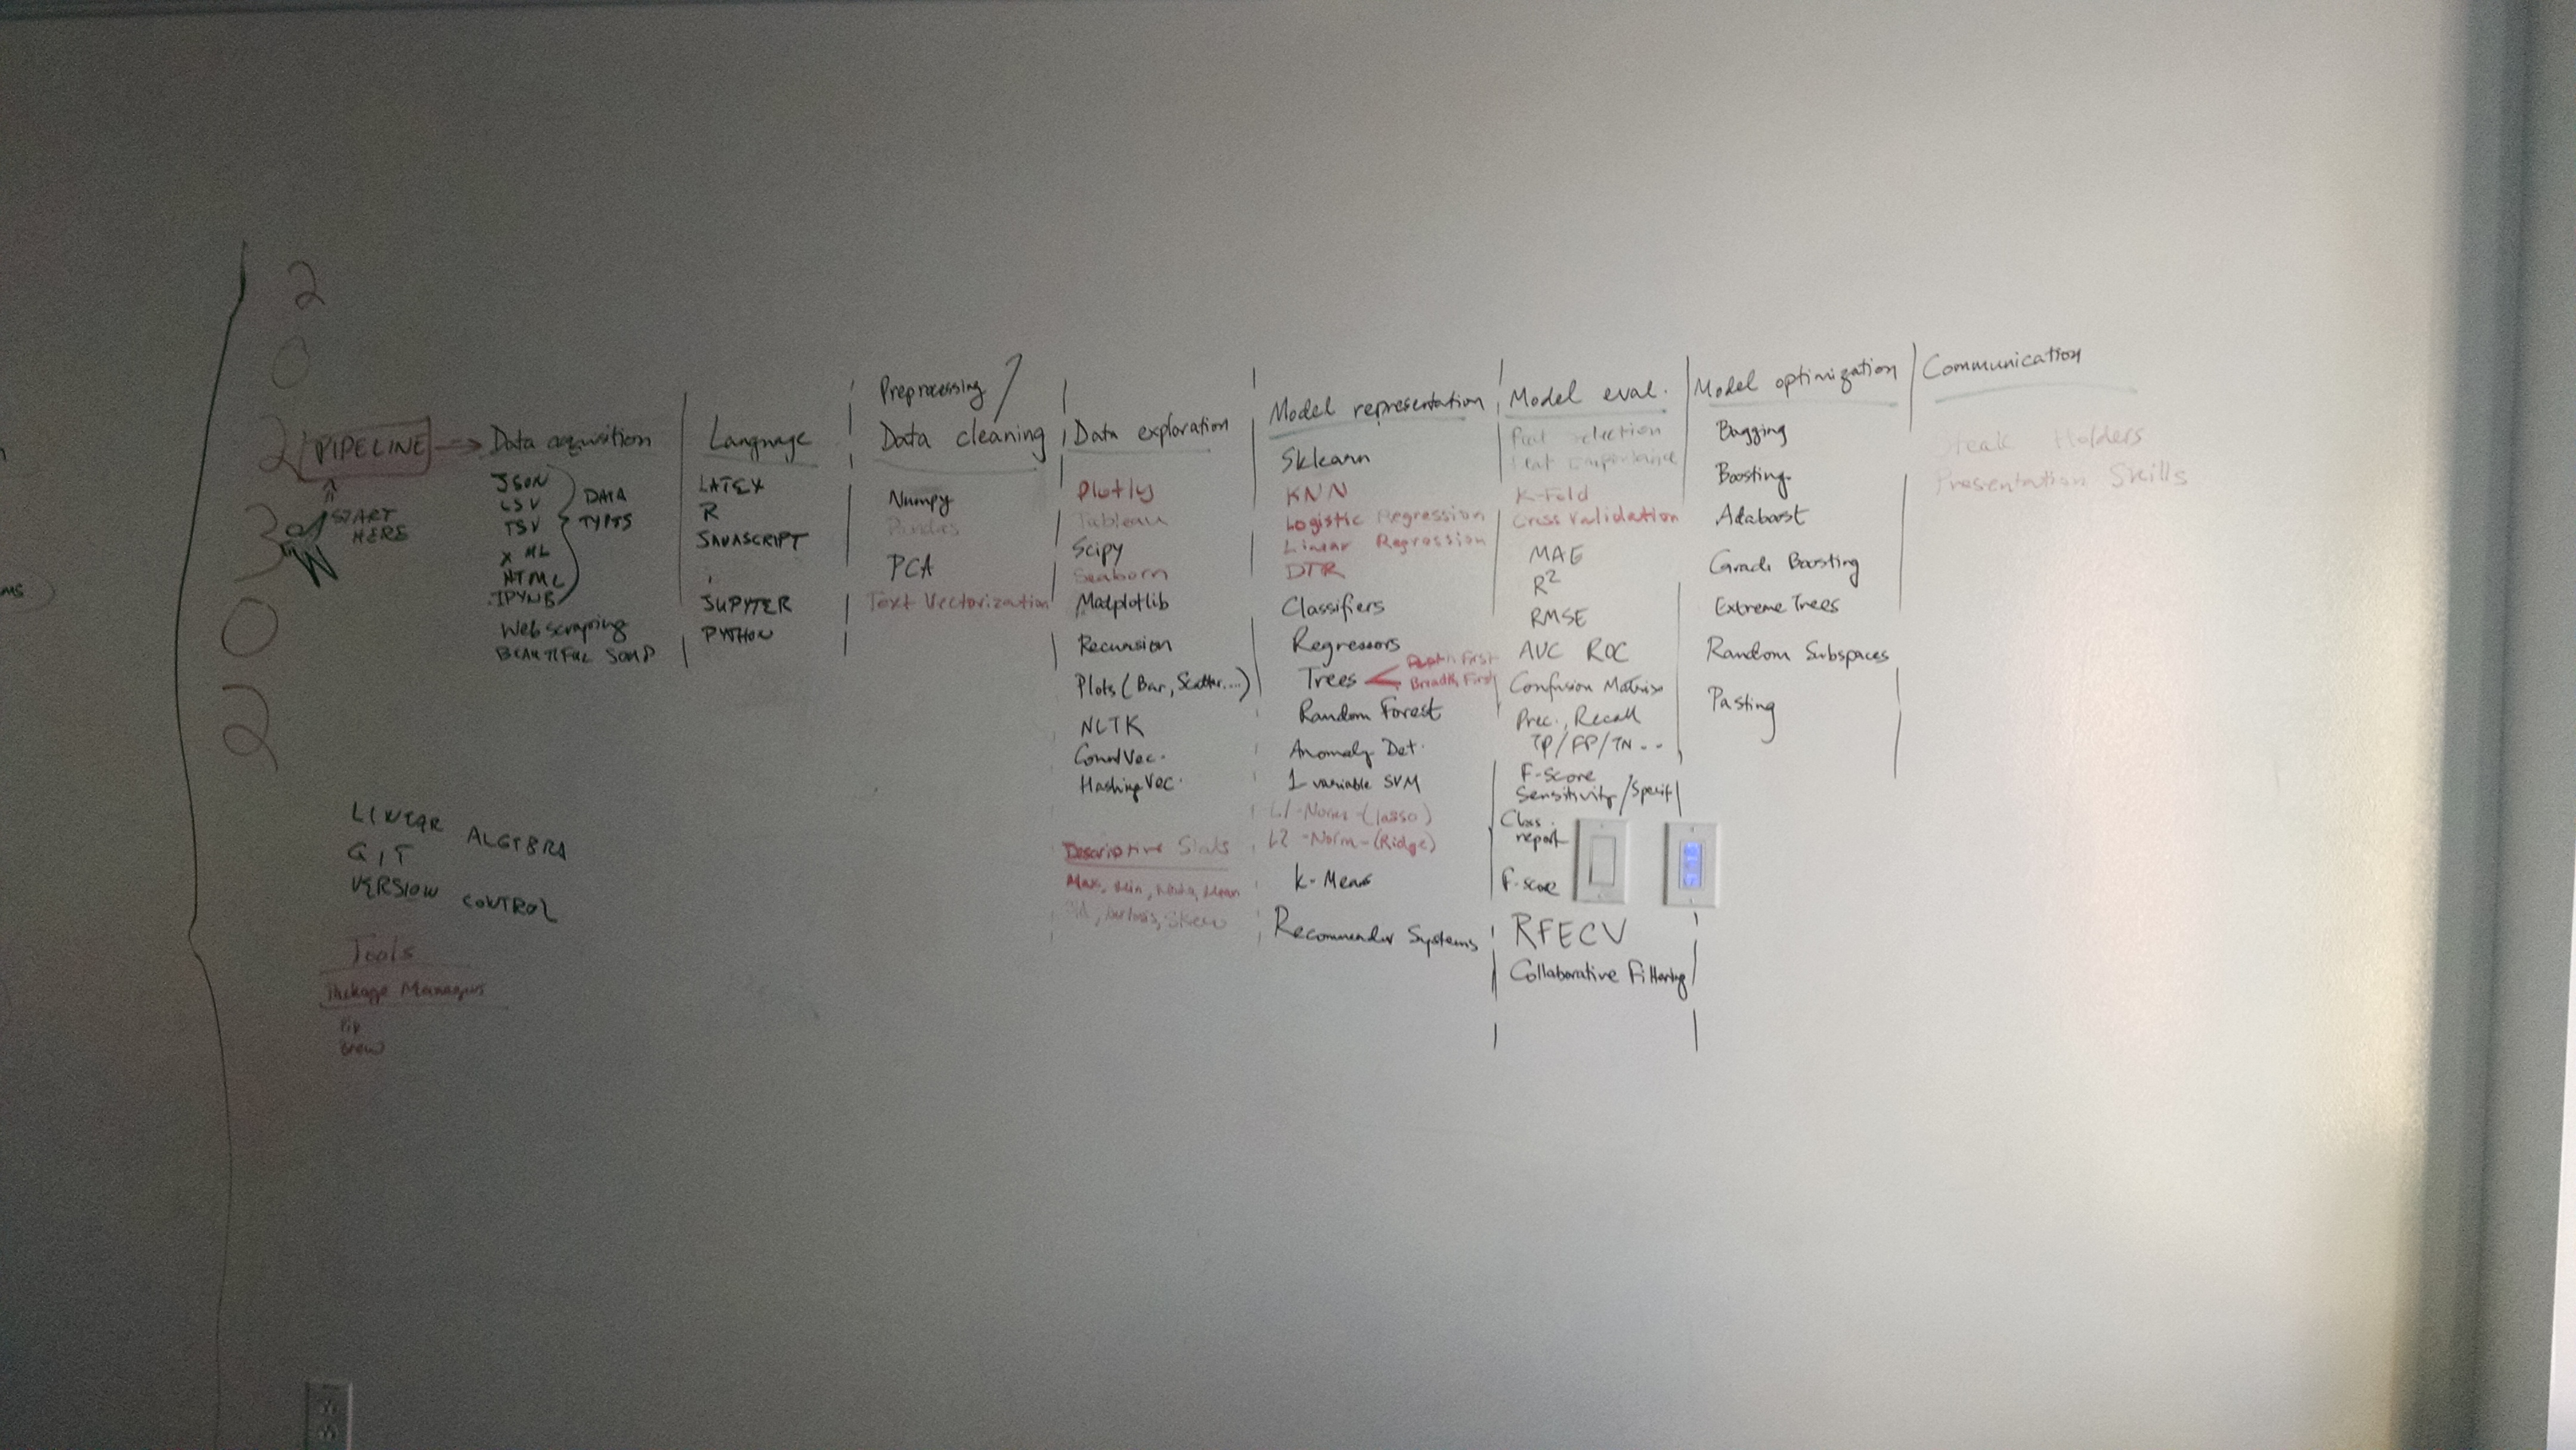 2
0
2
3
0
2
PIPELINE
START
HERE
Data acquisition
JSON
CSV
TSV
XML
HTML
.IPYNB
DATA
TYPES
Web scraping
BEAUTIFUL SOUP
Language
LATEX
R
JAVASCRIPT
JUPYTER
PYTHON
Preprocessing/
Data cleaning
Numpy
Pandas
PCA
Text Vectorization
Data exploration
Plotly
Tableau
Scipy
Seaborn
Matplotlib
Recursion
Plots (Bar, Scatter....)
NLTK
CountVec.
HashingVec.
Descriptive Stats
Max, Min, Mean
Kurtosis, Skew
Model representation
Sklearn
KNN
Logistic Regression
Linear Regression
DTR
Classifiers
Regressors
Trees
Depth First
Breadth First
Random Forest
Anomaly Det.
1 variable SVM
L1-Norm-(lasso)
L2-Norm-(Ridge)
K-Means
Recommender Systems
Model eval.
Feat selection
Feat importance
K-Fold
Cross Validation
MAE
R²
RMSE
AUC ROC
Confusion Matrix
Prec., Recall
TP/FP/TN..
F-score
Sensitivity/Specif
Class.
report
F-score
RFECV
Collaborative Filtering
Model optimization
Bagging
Boosting
Adaboost
Grade Boosting
Extreme Trees
Random Subspaces
Pasting
Communication
Steak Holders
Presentation Skills
LINEAR ALGEBRA
GIT
VERSION CONTROL
Tools
Package Managers
Pip
Brew